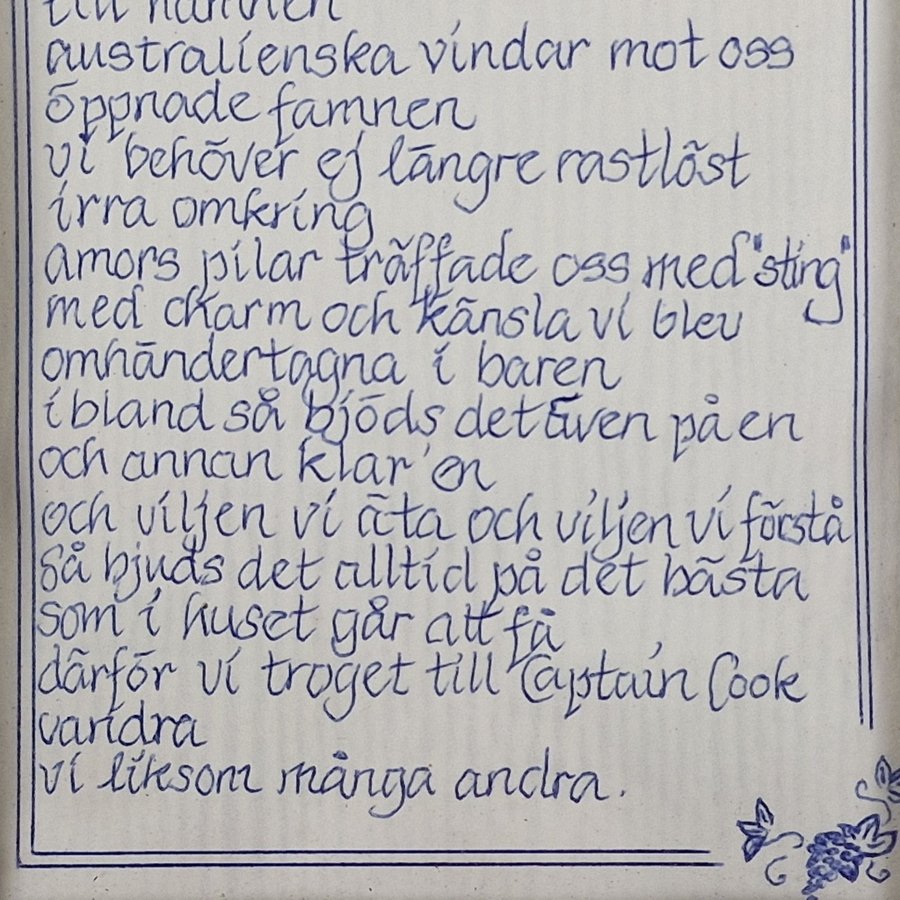 till hamnen
australienska vindar mot oss
öppnade famnen
vi behöver ej längre rastlöst
irra omkring
amors pilar träffade oss med "sting"
med charm och känsla vi blev
omhändertagna i baren
ibland så bjöds det även på en
och annan klar'en
och viljen vi äta och viljen vi förstå
så bjuds det alltid på det bästa
som i huset går att få
därför vi troget till Captain Cook
vandra
vi liksom många andra.